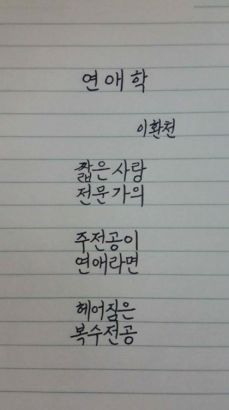 연애학
이환천
짧은사랑
전문가의
주전공이
연애라면
헤어짐은
복수전공